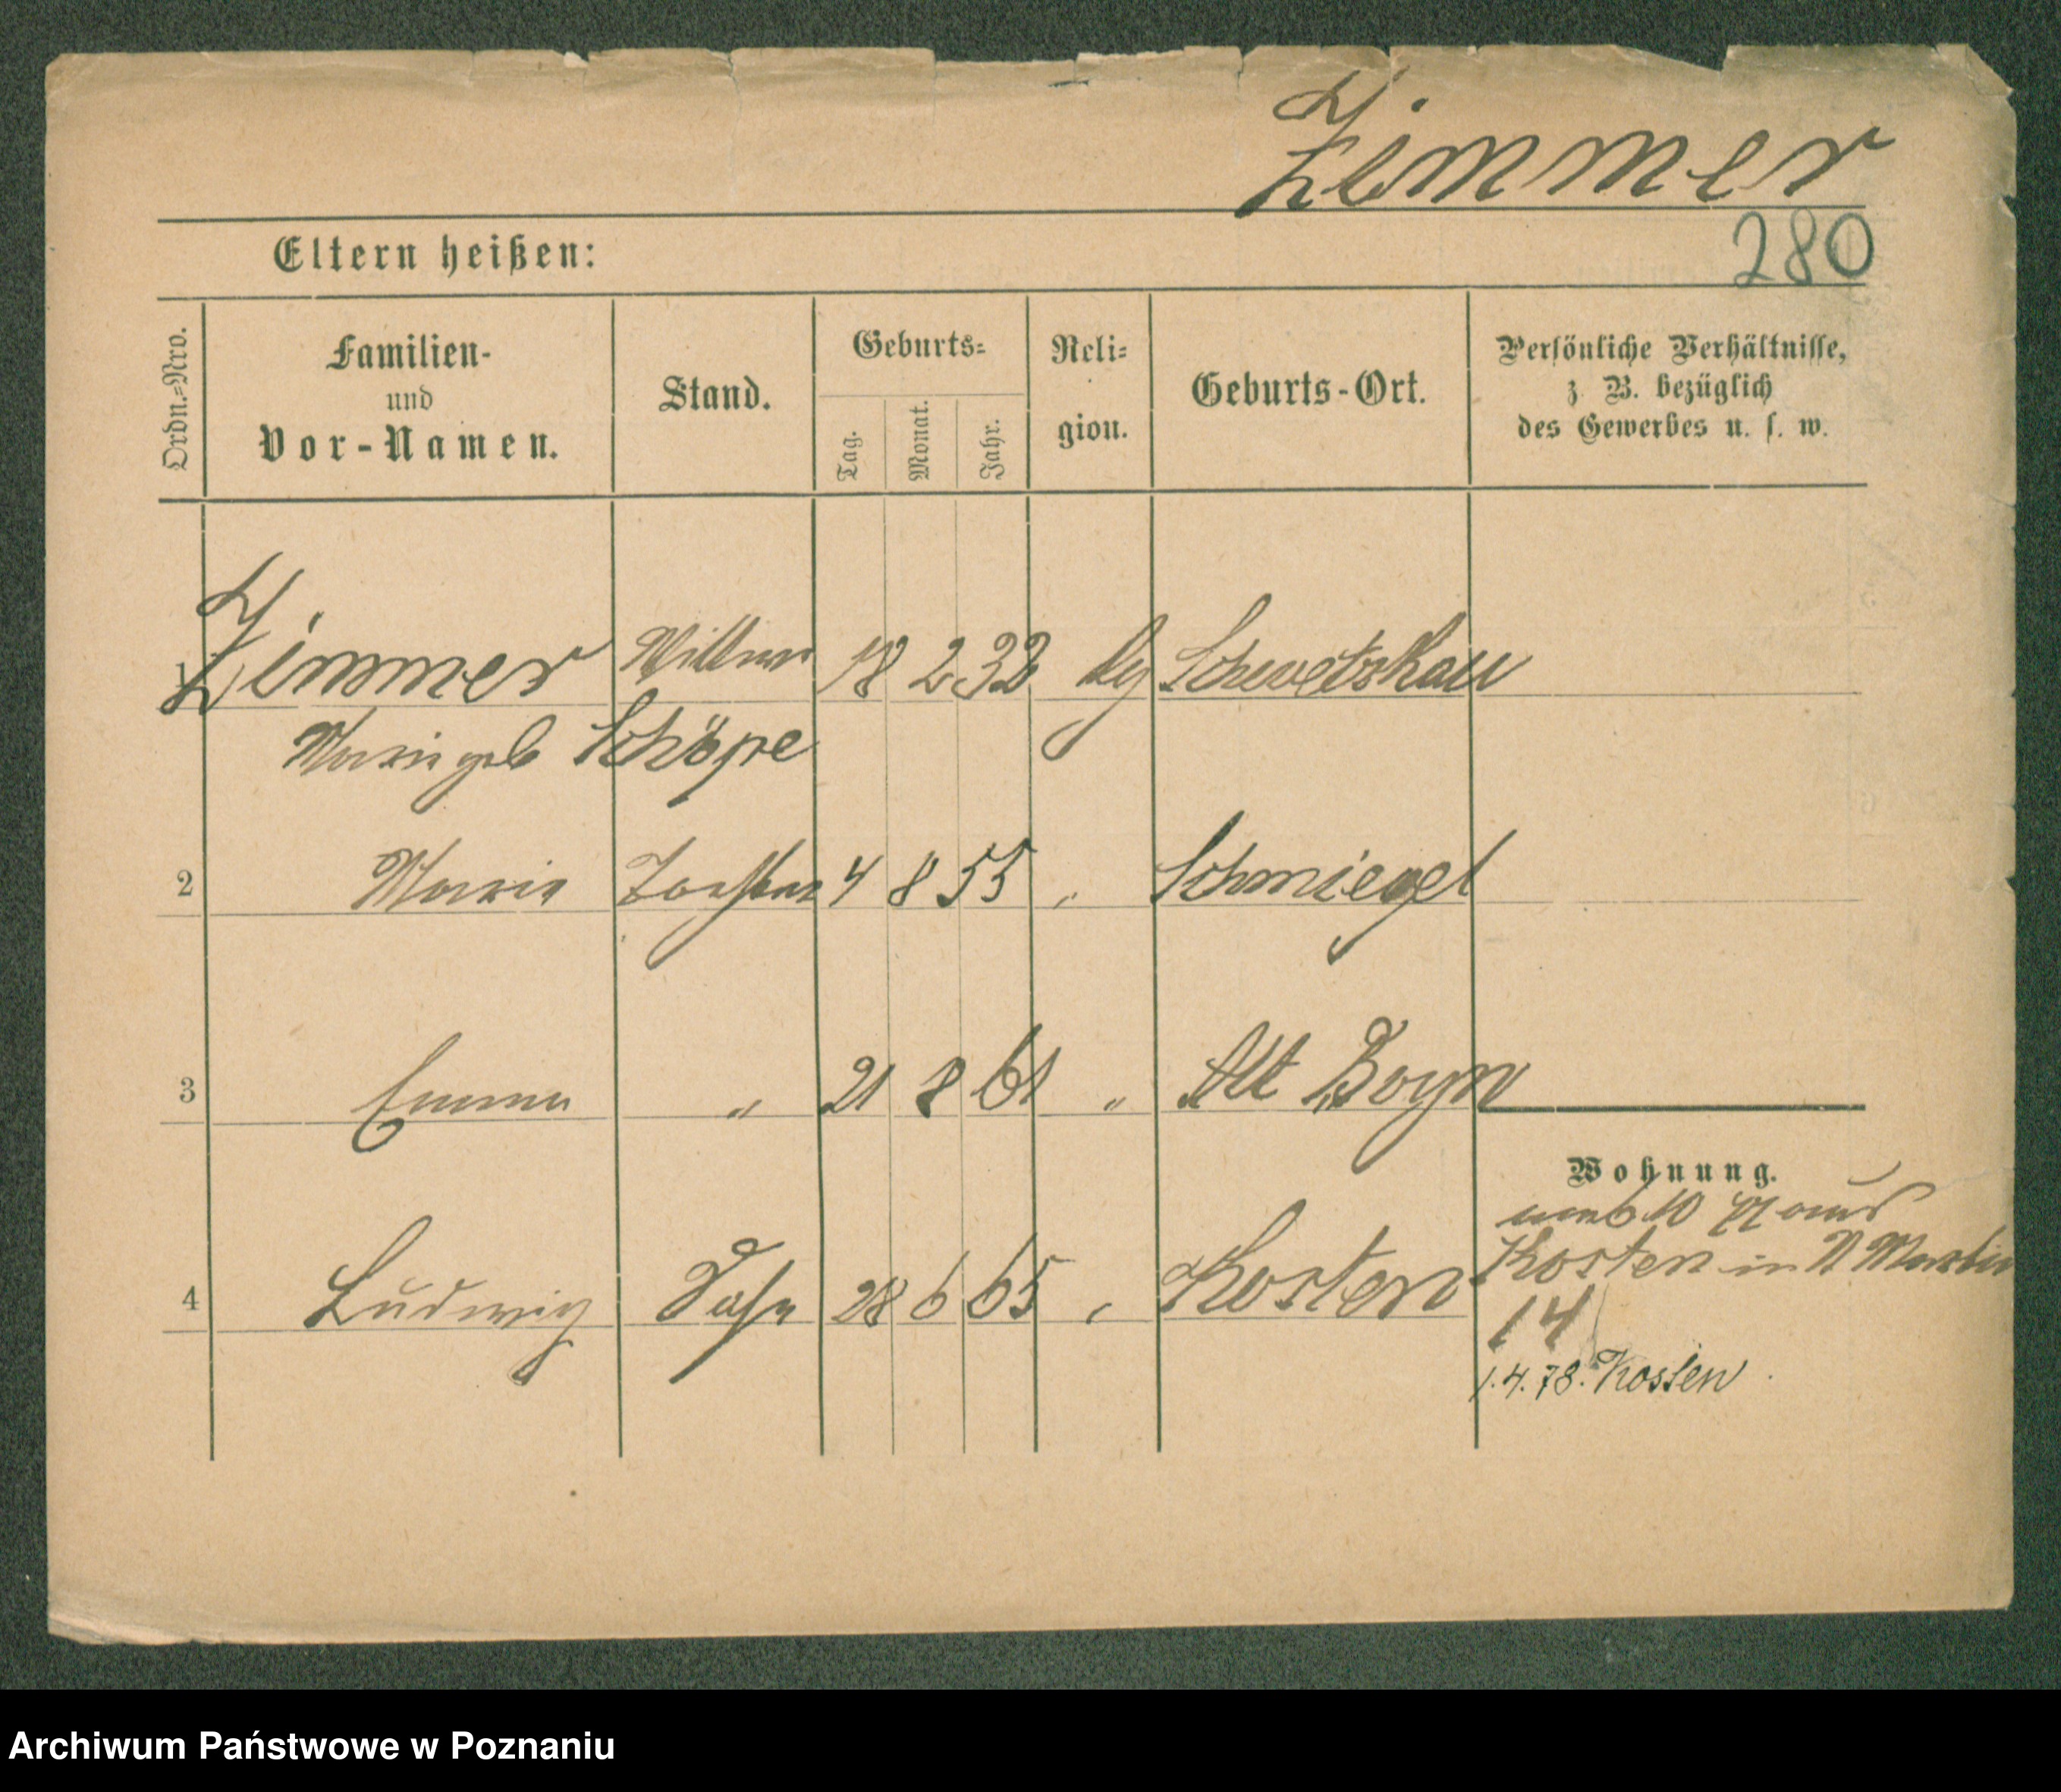 Zimmer
280
Eltern heißen:
Ordn.=Nro.
Familien- und Vor-Namen.
Stand.
Geburts=
Tag.
Monat.
Jahr.
Reli=
gion.
Geburts-Ort.
Persönliche Verhältnisse,
z. B. bezüglich
des Gewerbes u. s. w.
1 Zimmer Wittwe 18 2 32 Schwetzkau
Marie geb Schöpe
2 Marie Tochter 4 8 55 " Schmiegel
3 Emma " 21 8 61 " Alt Boyn
Wohnung.
4 Ludwig Sohn 28 6 65 " Kosten
10 77 aus
Kosten in Martin
14
1.4.78. Kosten
Archiwum Państwowe w Poznaniu